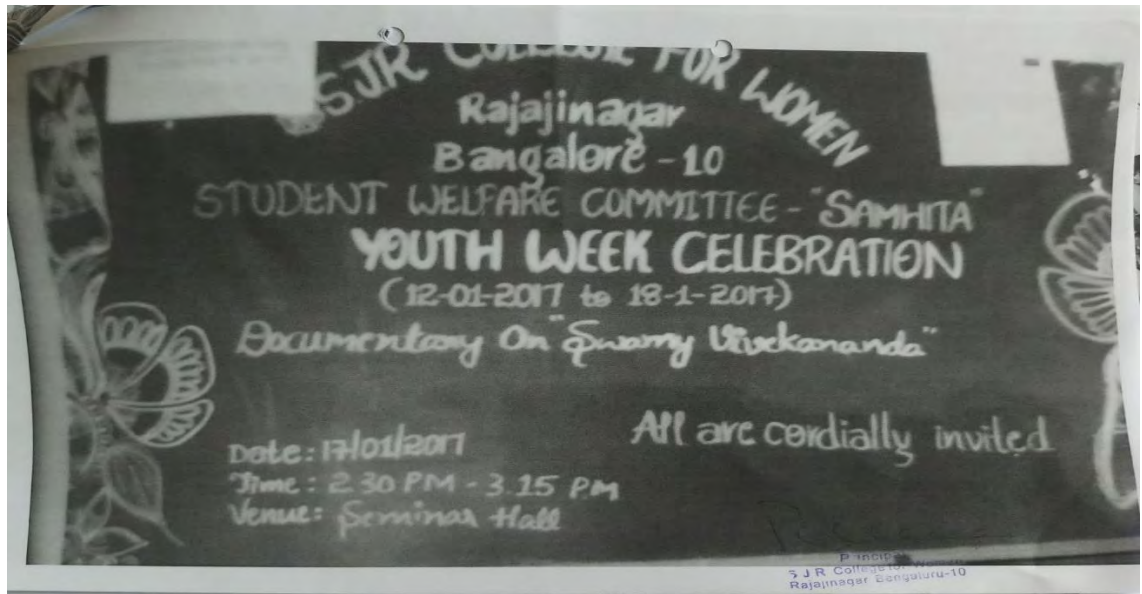 SJR COLLEGE FOR WOMEN
Rajajinagar
Bangalore - 10
STUDENT WELFARE COMMITTEE - "SAMHITA"
YOUTH WEEK CELEBRATION
(12-01-2017 to 18-1-2017)
Documentary On "Swamy Vivekananda"
All are cordially invited
Date: 17/01/2017
Time: 2.30 PM - 3.15 PM
Venue: Seminar Hall
Principal
S J R College for Women
Rajajinagar Bengaluru-10